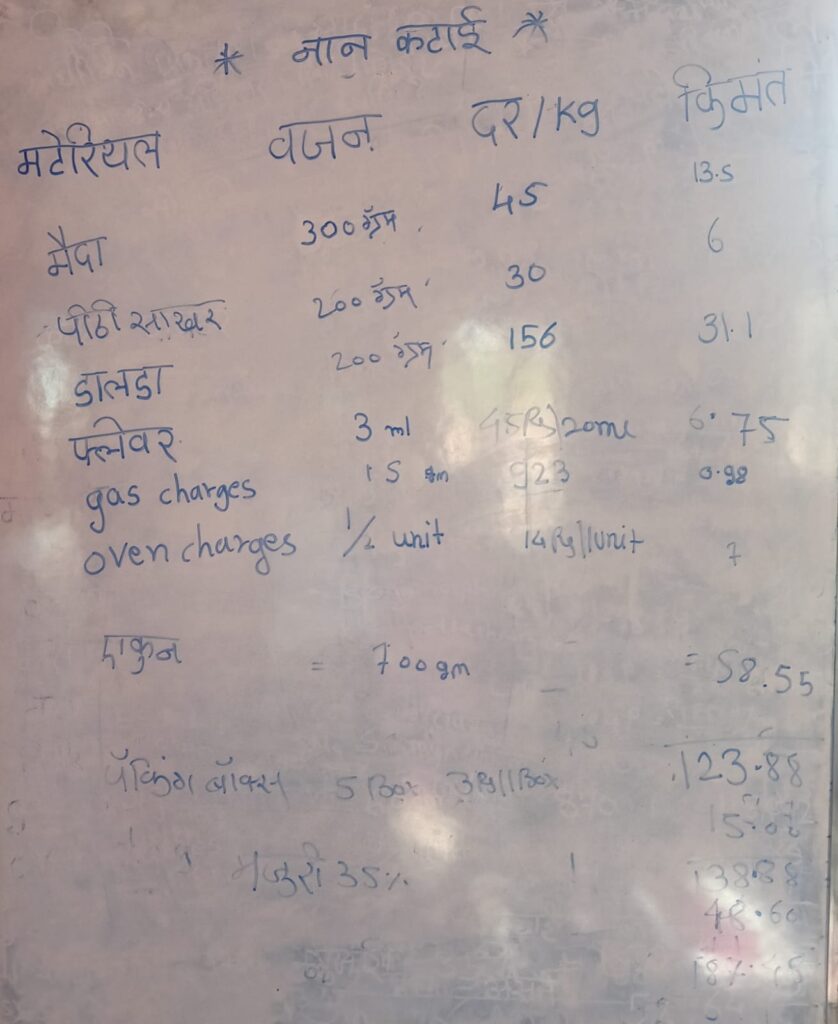 * नान कटाई *
मटेरियल वजन दर/kg किंमत
मैदा 300 ग्रॅम 45 13.5
पीठी साखर 200 ग्रॅम 30 6
डालडा 200 ग्रॅम 156 31.1
फ्लेवर 3 ml 45Rs/20ml 6.75
gas charges 15 gm 923 0.98
oven charges 1/2 unit 14Rs/1unit 7
एकुन = 700gm = 58.55
123.88
पॅकिंग बॉक्स 5 Box 3Rs/1Box
मजुरी 35% 138.88
48.60